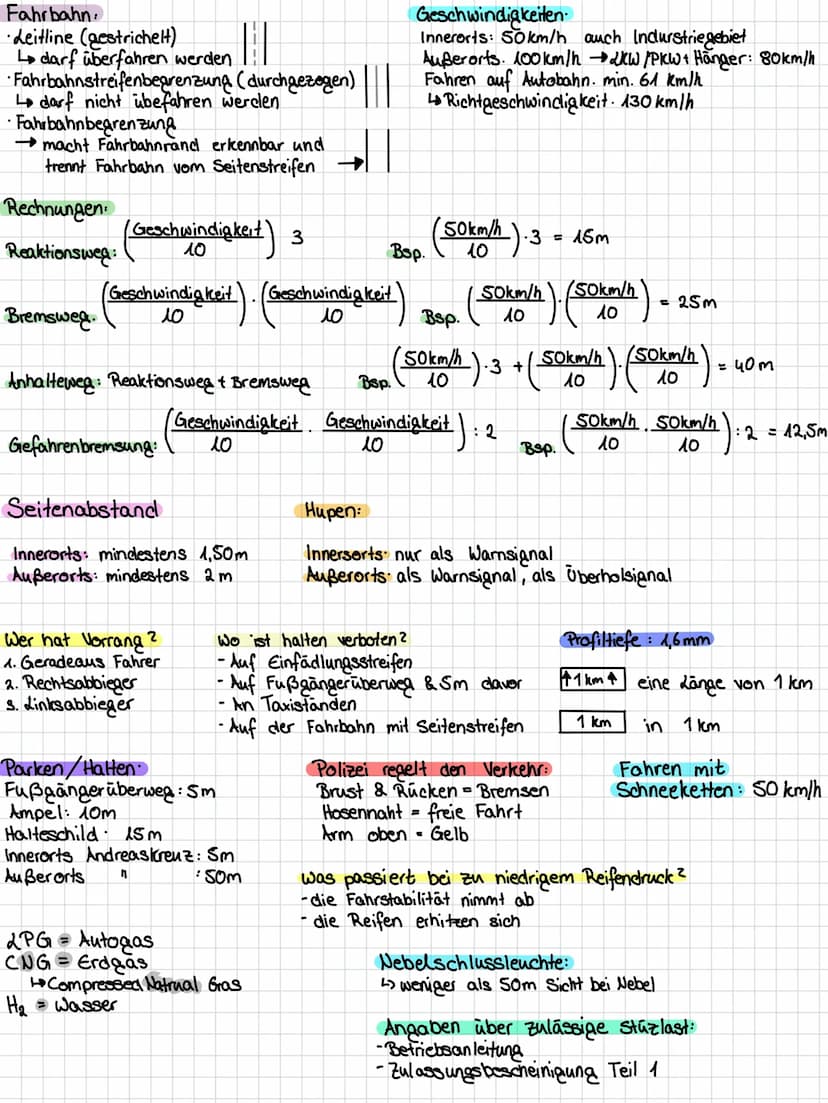 Fahrbahn:
· Leitline (gestrichelt)
↳ darf überfahren werden
· Fahrbahnstreifenbegrenzung (durchgezogen)
↳ darf nicht übefahren werden
· Fahrbahnbegrenzung
→ macht Fahrbahnrand erkennbar und
trennt Fahrbahn vom Seitenstreifen →
Geschwindigkeiten:
Innerorts: 50km/h auch Indurstriegebiet
Außerorts. 100km/h → LKW/PKW+ Hänger: 80km/h
Fahren auf Autobahn. min. 61 km/h
↳ Richtgeschwindigkeit. 130 km/h
Rechnungen:
Reaktionsweg: (Geschwindigkeit / 10) 3 Bsp. (50km/h / 10) · 3 = 15m
Bremsweg. (Geschwindigkeit / 10) · (Geschwindigkeit / 10) Bsp. (50km/h / 10) · (50km/h / 10) = 25m
Anhalteweg: Reaktionsweg + Bremsweg Bsp. (50km/h / 10) · 3 + (50km/h / 10) · (50km/h / 10) = 40m
Gefahrenbremsung: (Geschwindigkeit / 10 · Geschwindigkeit / 10) : 2 Bsp. (50km/h / 10 · 50km/h / 10) : 2 = 12,5m
Seitenabstand
Innerorts: mindestens 1,50m
Außerorts: mindestens 2m
Hupen:
Innerserts: nur als Warnsignal
Außerorts: als Warnsignal, als Überholsignal
Wer hat Vorrang?
1. Geradeaus Fahrer
2. Rechtsabbieger
3. Linksabbieger
Wo ist halten verboten?
- Auf Einfädlungsstreifen
- Auf Fußgängerüberweg & 5m davor
- An Taxiständen
- Auf der Fahrbahn mit Seitenstreifen
Profiltiefe: 1,6mm
↑1 km↑ eine Länge von 1 km
1 km in 1 km
Parken/Halten:
Fußgängerüberweg: 5m
Ampel: 10m
Halteschild · 15m
Innerorts Andreaskreuz: 5m
Außerorts " : 50m
Polizei regelt den Verkehr:
Brust & Rücken = Bremsen
Hosennaht = freie Fahrt
Arm oben = Gelb
Fahren mit
Schneeketten: 50 km/h
Was passiert bei zu niedrigem Reifendruck?
- die Fahrstabilität nimmt ab
- die Reifen erhitzen sich
LPG = Autogas
CNG = Erdgas
↳ Compressed Natrual Gras
H₂ = Wasser
Nebelschlussleuchte:
↳ weniger als 50m Sicht bei Nebel
Angaben über zulässige Stüzlast:
- Betriebsanleitung
- Zulassungsbescheinigung Teil 1